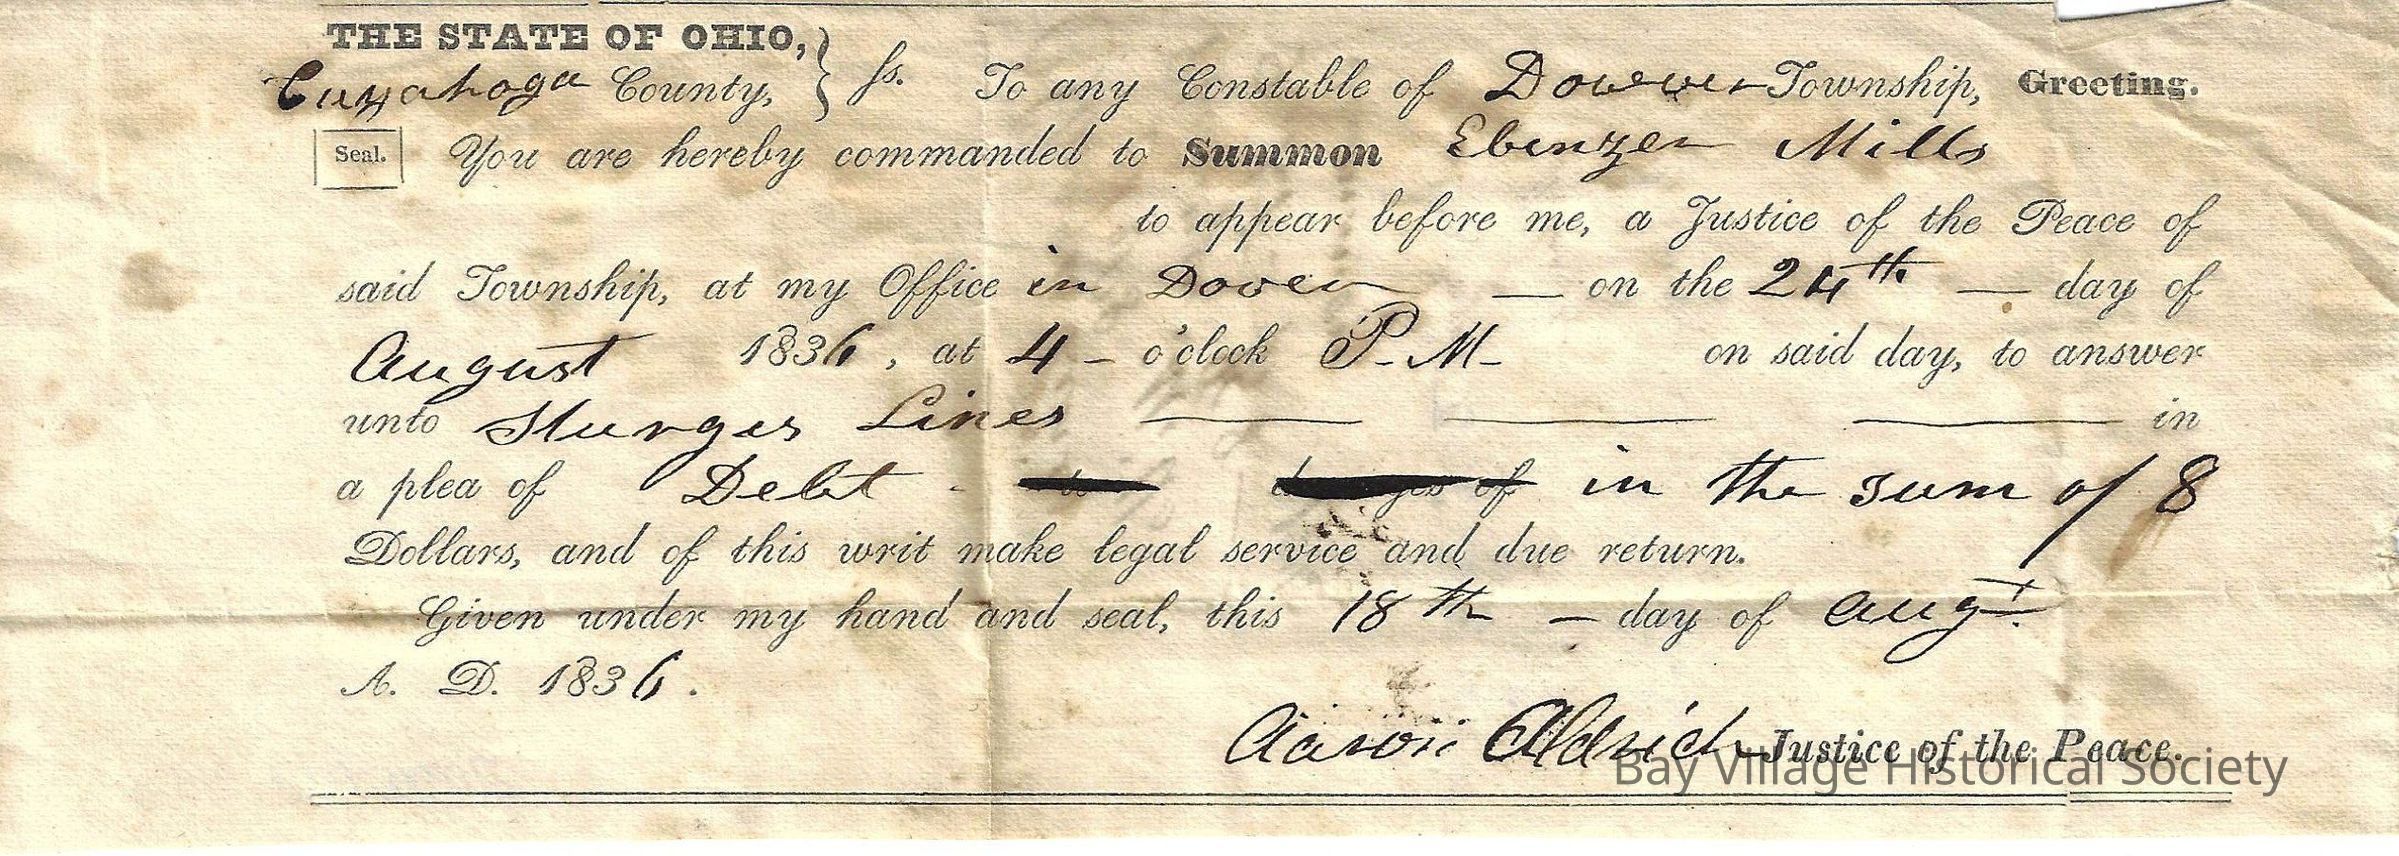 THE STATE OF OHIO,
Cuyahoga County, } ss. To any Constable of Dowver Township, Greeting.
Seal. You are hereby commanded to Summon Ebenzer Mills
to appear before me, a Justice of the Peace of
said Township, at my Office in Dover — on the 24th — day of
August 1836, at 4 - o'clock P. M. on said day, to answer
unto Sturges Lines — — — in
a plea of Debt - in the sum of 8
Dollars, and of this writ make legal service and due return.
Given under my hand and seal, this 18th — day of Augt.
A. D. 1836.
Aaron Aldrich Justice of the Peace.
Bay Village Historical Society